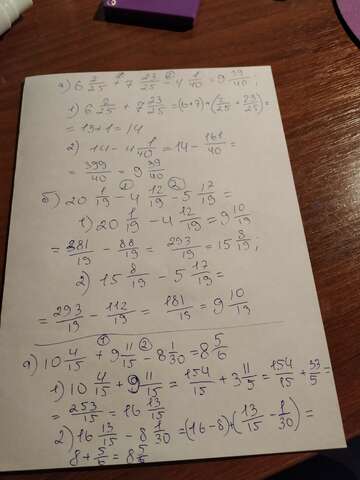 а) 6 2/25 + 7 23/25 - 4 1/40 = 9 39/40;
1) 6 2/25 + 7 23/25 = (6+7)+(2/25 + 23/25) =
= 13+1 = 14
2) 14 - 4 1/40 = 14 - 161/40 =
= 399/40 = 9 39/40
б) 20 1/19 - 4 12/19 - 5 17/19 =
1) 20 1/19 - 4 12/19 = 9 10/19
= 381/19 - 88/19 = 293/19 = 15 8/19;
2) 15 8/19 - 5 17/19 =
= 293/19 - 112/19 = 181/19 = 9 10/19
а) 10 4/15 + 9 11/15 - 8 1/30 = 8 5/6
1) 10 4/15 + 9 11/15 = 154/15 + 3 11/5 = 154/15 + 33/5 =
= 253/15 = 16 13/15
2) 16 13/15 - 8 1/30 = (16-8)+(13/15 - 1/30) =
8 + 5/6 = 8 5/6